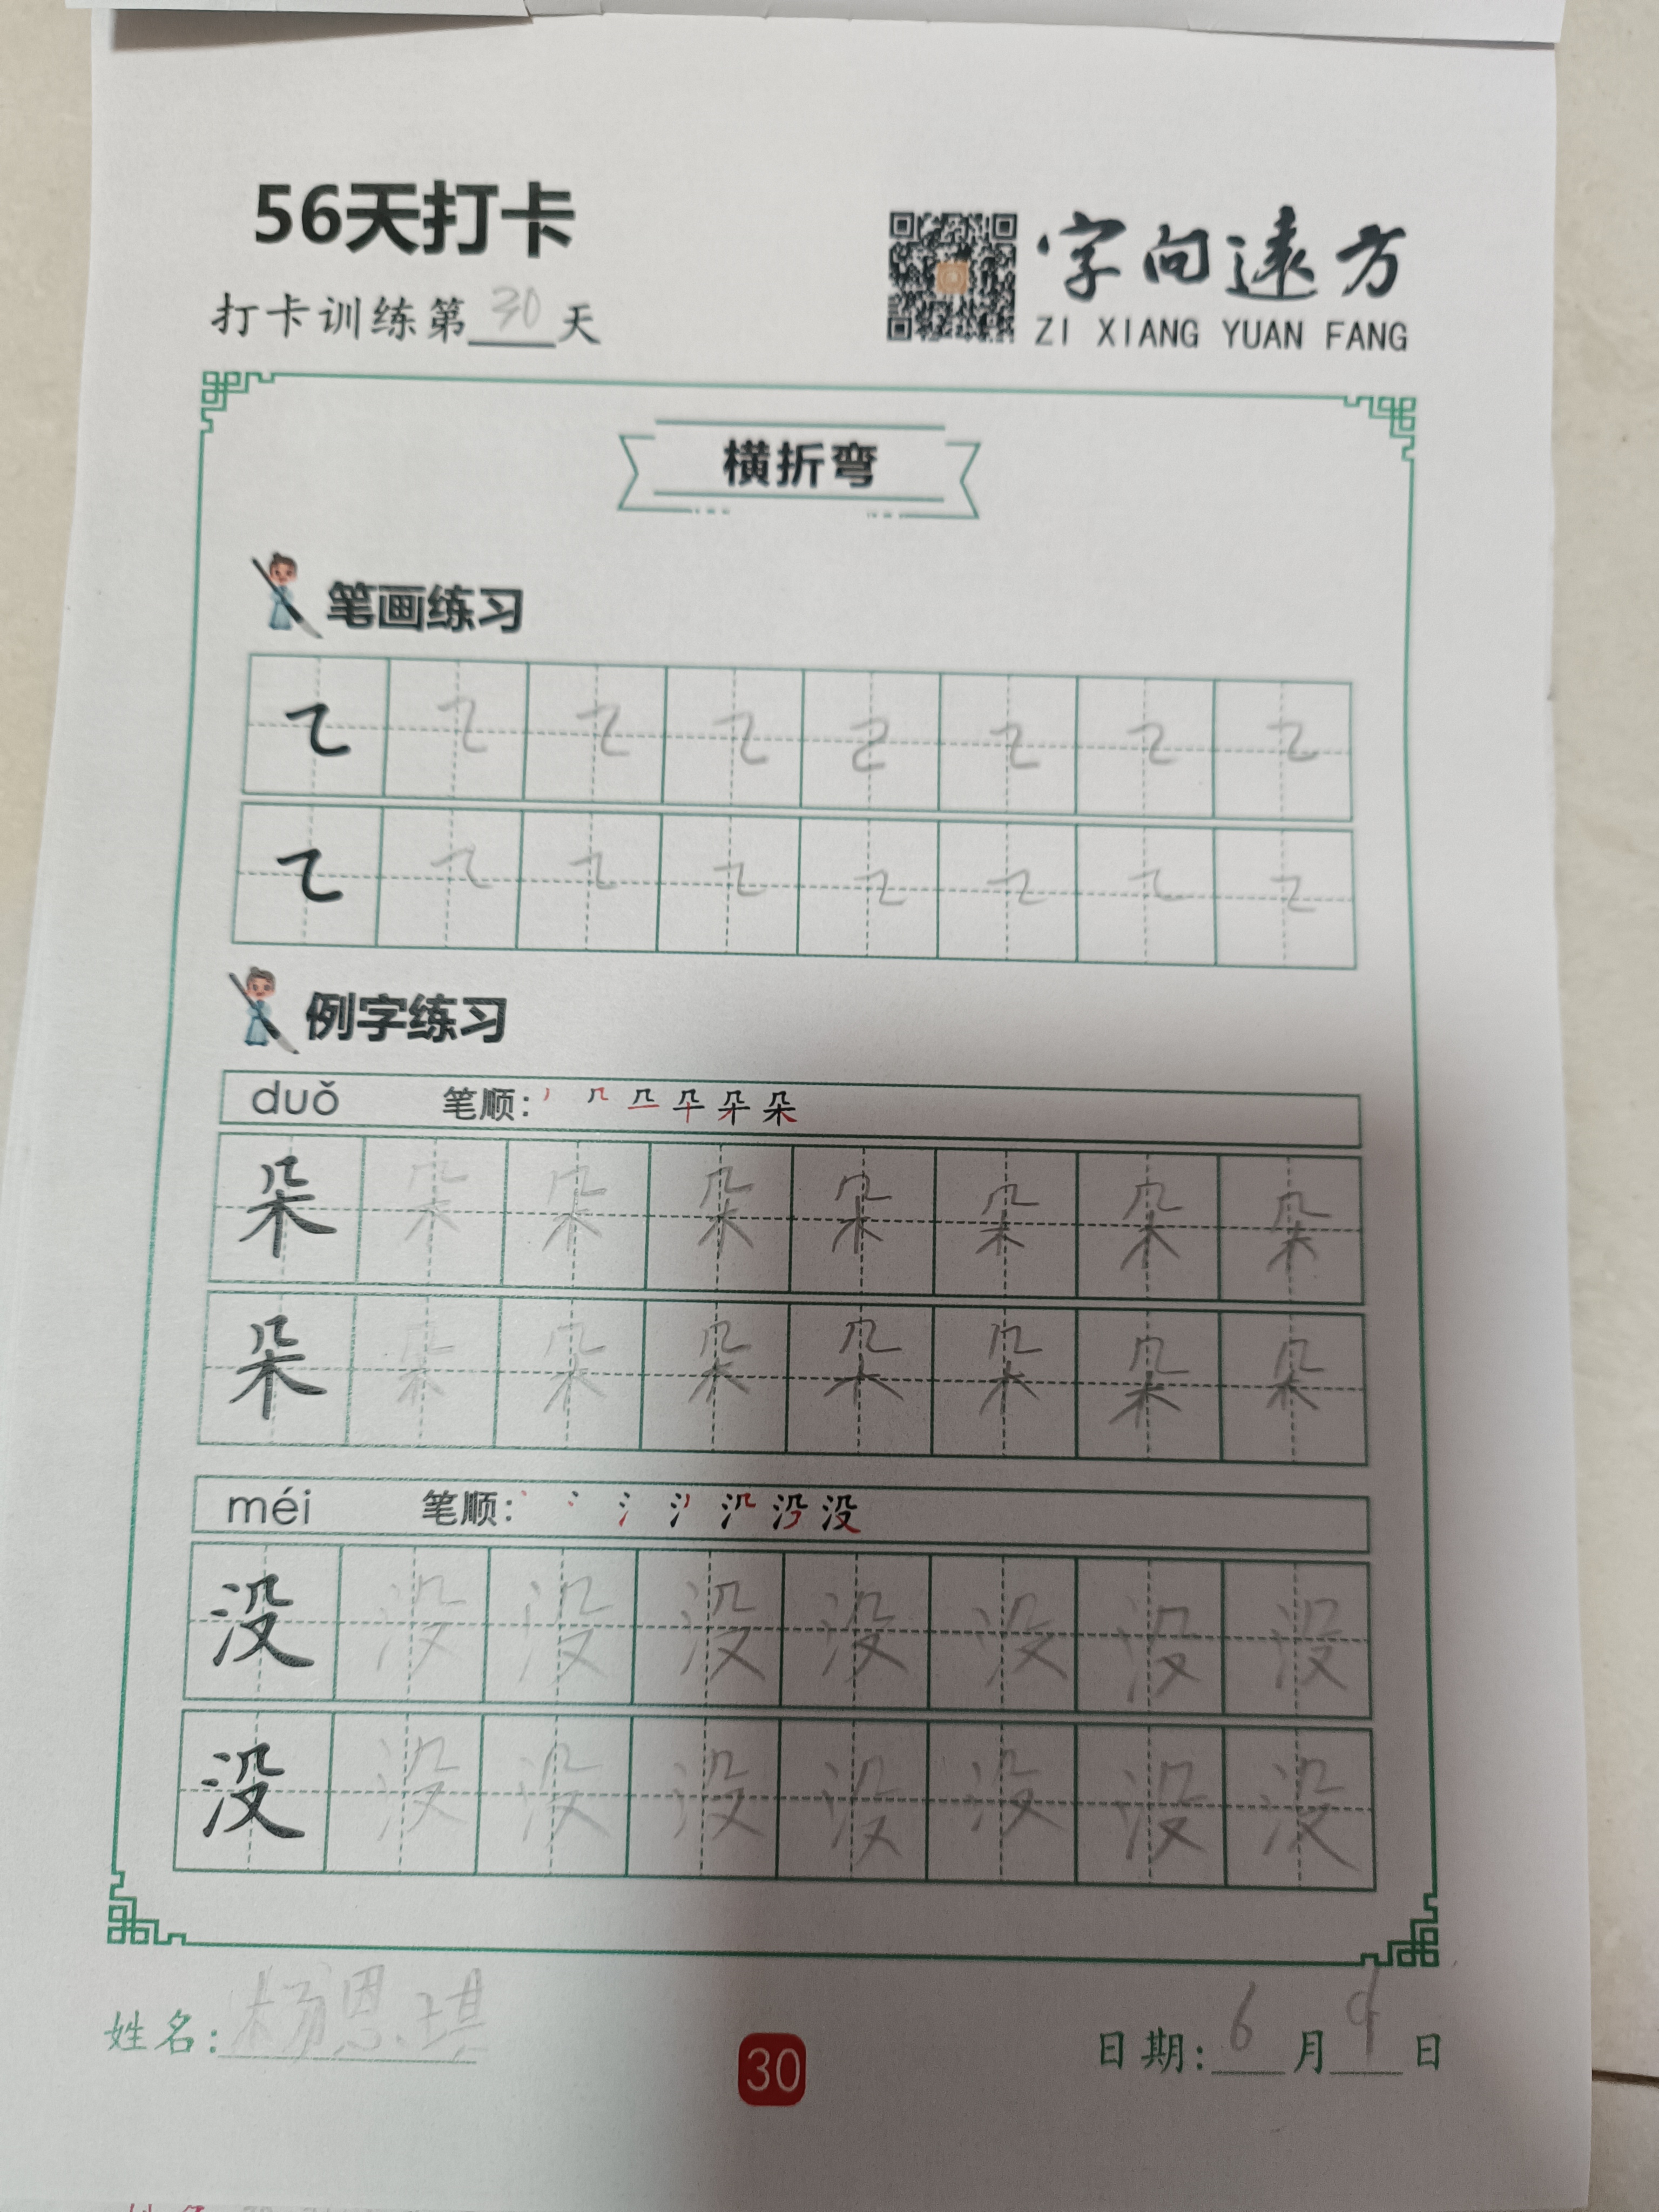 56天打卡
打卡训练第30天
字向遠方
ZI XIANG YUAN FANG
横折弯
笔画练习
例字练习
duǒ 笔顺:
朵 朵 朵 朵 朵 朵 朵 朵
朵 朵 朵 朵 朵 朵 朵 朵
méi 笔顺:
没 没 没 没 没 没 没 没
没 没 没 没 没 没 没 没
姓名:杨恩琪
30
日期:6月9日